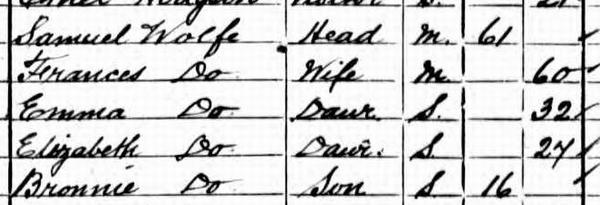 Samuel Wolfe Head M. 61
Frances Do Wife M 60
Emma Do Daur S. 32
Elizabeth Do Daur. S. 27
Bronnie Do Son S 16